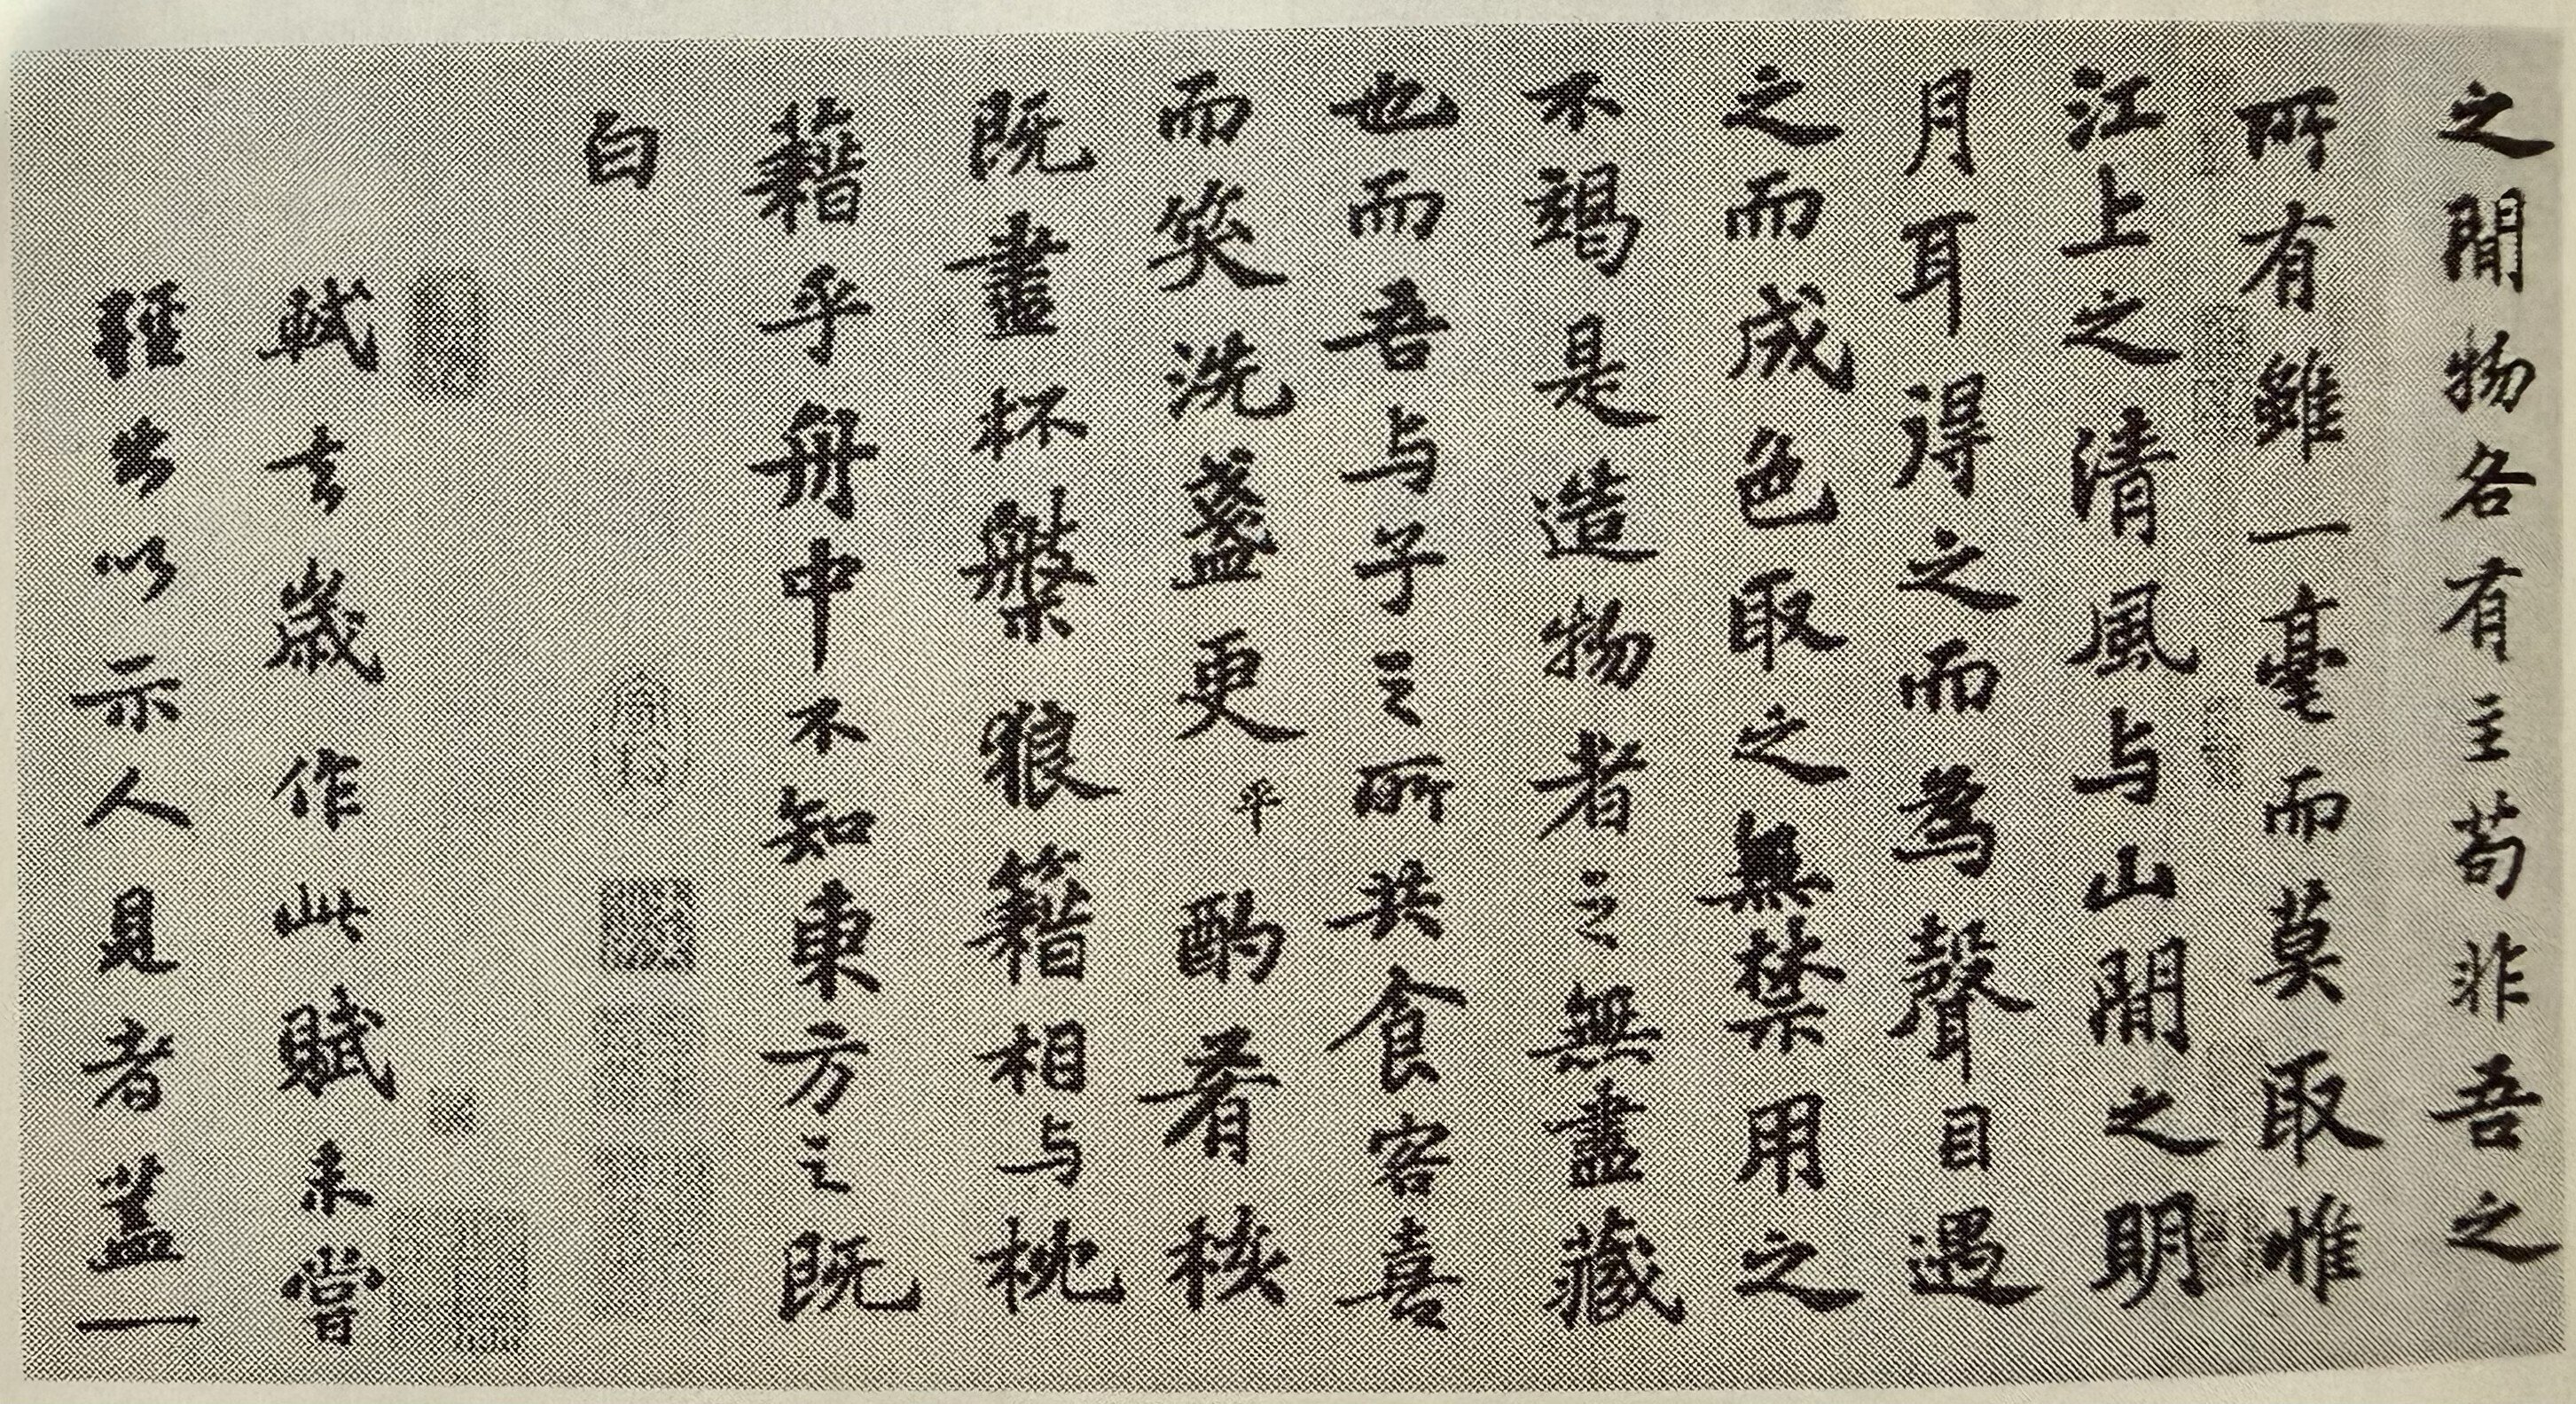 之間物各有主苟非吾之
所有雖一毫而莫取惟
江上之清風与山間之明
月耳得之而為聲目遇
之而成色取之無禁用之
不竭是造物者之無盡藏
也而吾与子之所共食客喜
而笑洗盞更平酌肴核
既盡杯槃狼籍相与枕
藉乎舟中不知東方之既
白
軾去歲作此賦未嘗
輕出以示人見者蓋一